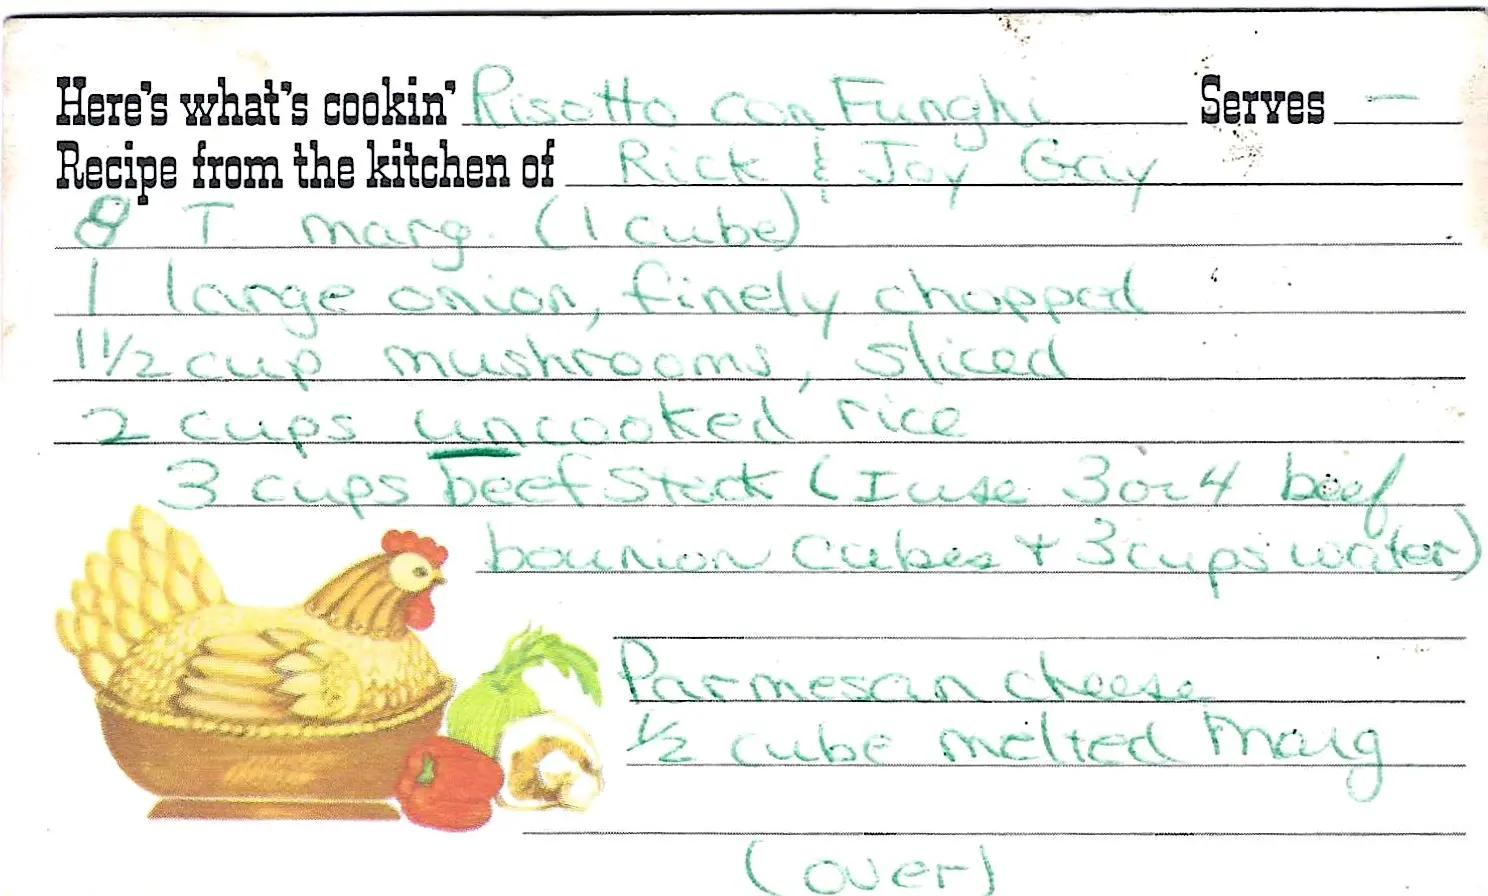 Here's what's cookin' Risotto con Funghi Serves —
Recipe from the kitchen of Rick & Joy Gay
8 T marg. (1 cube)
1 large onion, finely chopped
1 1/2 cup mushrooms, sliced
2 cups uncooked rice
3 cups beef stock (I use 3 or 4 beef
bounion cubes + 3 cups water)
Parmesan cheese
1/2 cube melted marg
(over)